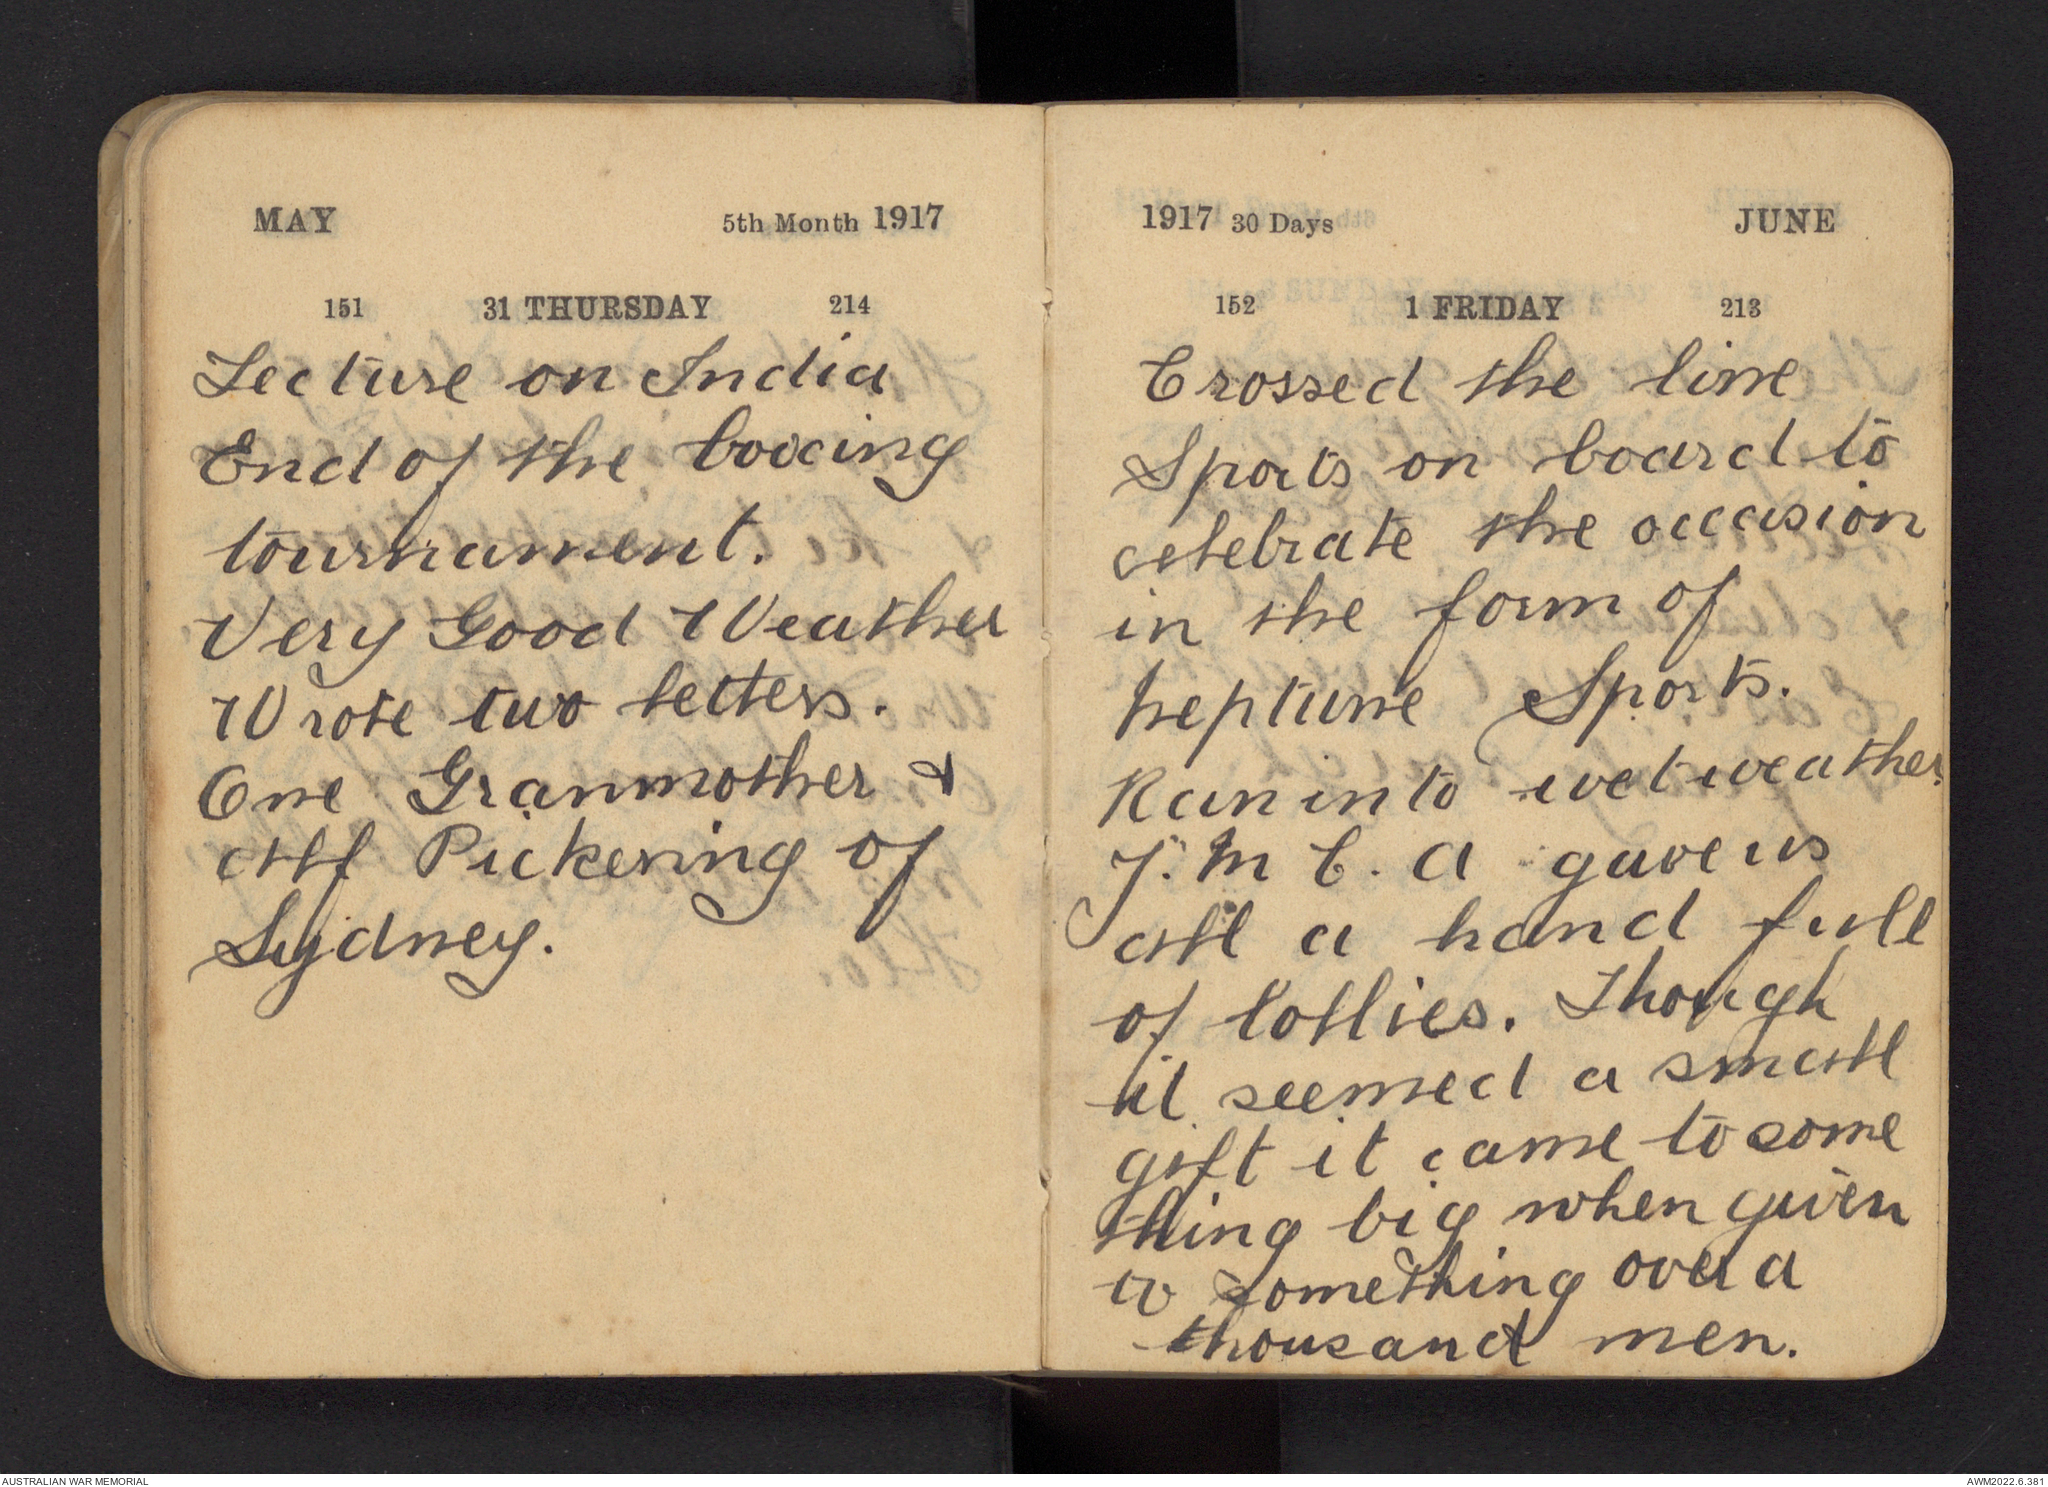 MAY 5th Month 1917
151 31 THURSDAY 214
Lecture on India
End of the boxing
tournament.
Very Good Weather
Wrote two letters.
One Granmother &
Alf Pickering of
Sydney.
1917 30 Days JUNE
152 1 FRIDAY 213
Crossed the line
Sports on board to
celebrate the occasion
in the form of
Neptune Sports.
Ran into wet weather.
Y. M C. A gave us
all a hand full
of lollies. Though
it seemed a small
gift it came to some
thing big when given
to something over a
thousand men.
AUSTRALIAN WAR MEMORIAL
AWM2022.6.381